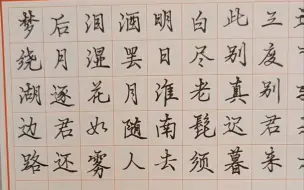 三度别君来
此别真迟暮
白尽老髭须
明日淮南去
酒罢月随人
泪湿花如雾
后月逐君还
梦绕湖边路